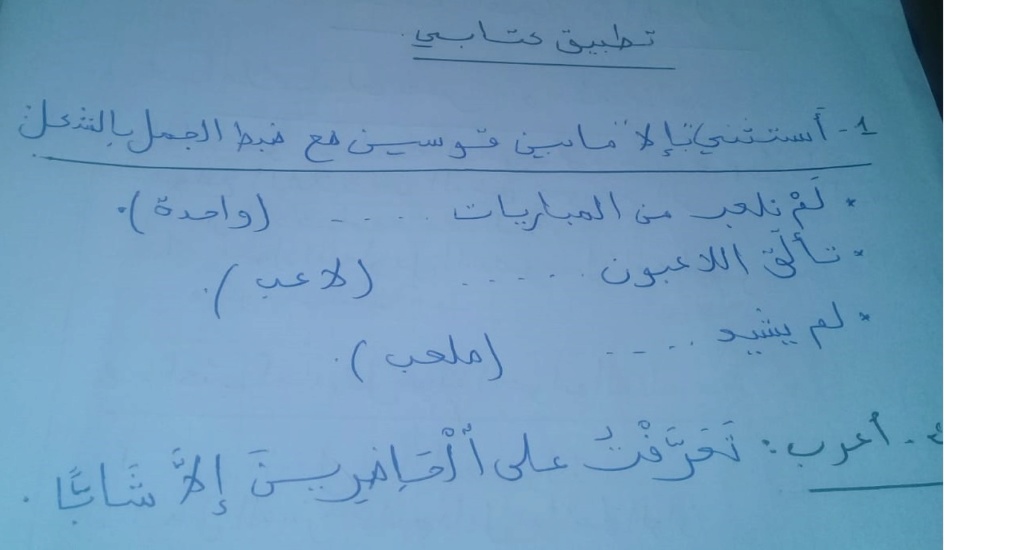 تطبيق كتابي.
1- أستثني بـ"إلا" ما بين قوسين مع ضبط الجمل بالشكل
* لَمْ نلعب من المباريات ..... (واحدة).
* تألَّق اللاعبون ..... (لاعب).
* لم يشيد ..... (ملعب).
2- أعرب: تَعَرَّفْتُ على ٱلْحَاضِرِينَ إِلاَّ شَابًّا.